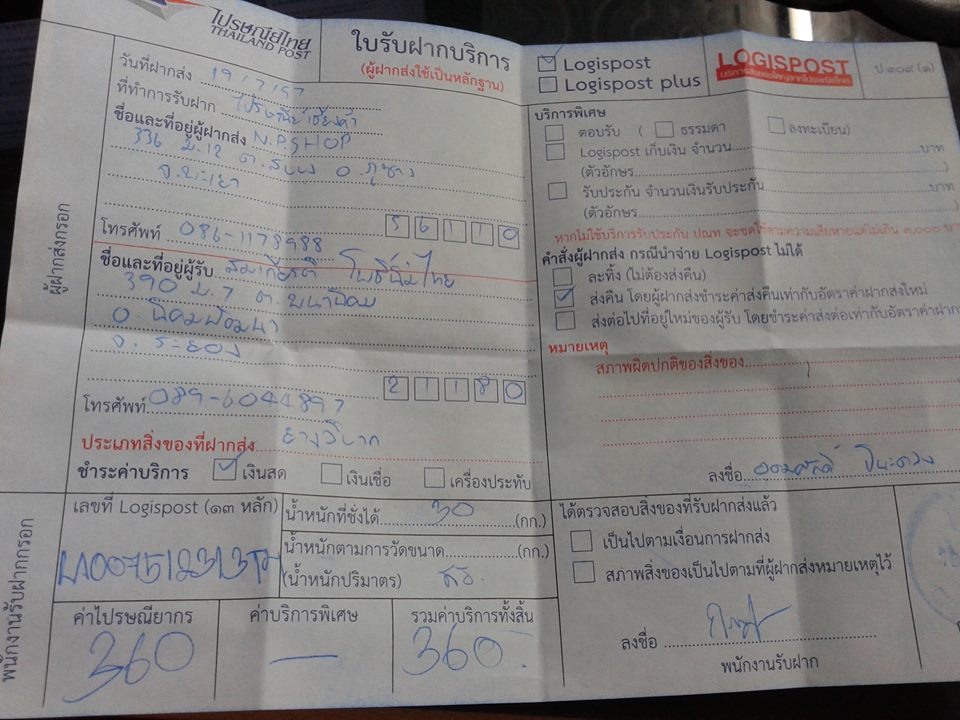 ไปรษณีย์ไทย
THAILAND POST
ใบรับฝากบริการ
(ผู้ฝากส่งใช้เป็นหลักฐาน)
Logispost
Logispost plus
LOGISPOST
ป.๓๐๙ (๑)
วันที่ฝากส่ง 19/7/57
ที่ทำการรับฝาก ไปรษณีย์เชียงคำ
ชื่อและที่อยู่ผู้ฝากส่ง N.P SHOP
336 ม.12 ต.สบบง อ.ภูซาง
จ.พะเยา
56110
โทรศัพท์ 086-1178988
ชื่อและที่อยู่ผู้รับ สมเกียรติ โพธิ์นิ่มไทย
390 ม.7 ต.
อ นิคมพัฒนา
จ.ระยอง
21180
โทรศัพท์ 089-6044897
ประเภทสิ่งของที่ฝากส่ง
ชำระค่าบริการ เงินสด เงินเชื่อ เครื่องประทับ
ผู้ฝากส่งกรอก
บริการพิเศษ
ตอบรับ ( ธรรมดา ลงทะเบียน)
Logispost เก็บเงิน จำนวน บาท
(ตัวอักษร )
รับประกัน จำนวนเงินรับประกัน บาท
(ตัวอักษร )
หากไม่ใช้บริการรับประกัน ปณท จะชดใช้ตามความเสียหายแต่ไม่เกิน ๓,๐๐๐ บาท
คำสั่งผู้ฝากส่ง กรณีนำจ่าย Logispost ไม่ได้
ละทิ้ง (ไม่ต้องส่งคืน)
ส่งคืน โดยผู้ฝากส่งชำระค่าส่งคืนเท่ากับอัตราค่าฝากส่งใหม่
ส่งต่อไปที่อยู่ใหม่ของผู้รับ โดยชำระค่าส่งต่อเท่ากับอัตราค่าฝาก
หมายเหตุ
สภาพผิดปกติของสิ่งของ
ลงชื่อ
พนักงานรับฝากกรอก
เลขที่ Logispost (๑๓ หลัก)
น้ำหนักที่ชั่งได้ 30 (กก.)
น้ำหนักตามการวัดขนาด (กก.)
(น้ำหนักปริมาตร)
ค่าไปรษณียากร
360
ค่าบริการพิเศษ
—
รวมค่าบริการทั้งสิ้น
360
ได้ตรวจสอบสิ่งของที่รับฝากส่งแล้ว
เป็นไปตามเงื่อนการฝากส่ง
สภาพสิ่งของเป็นไปตามที่ผู้ฝากส่งหมายเหตุไว้
ลงชื่อ
พนักงานรับฝาก